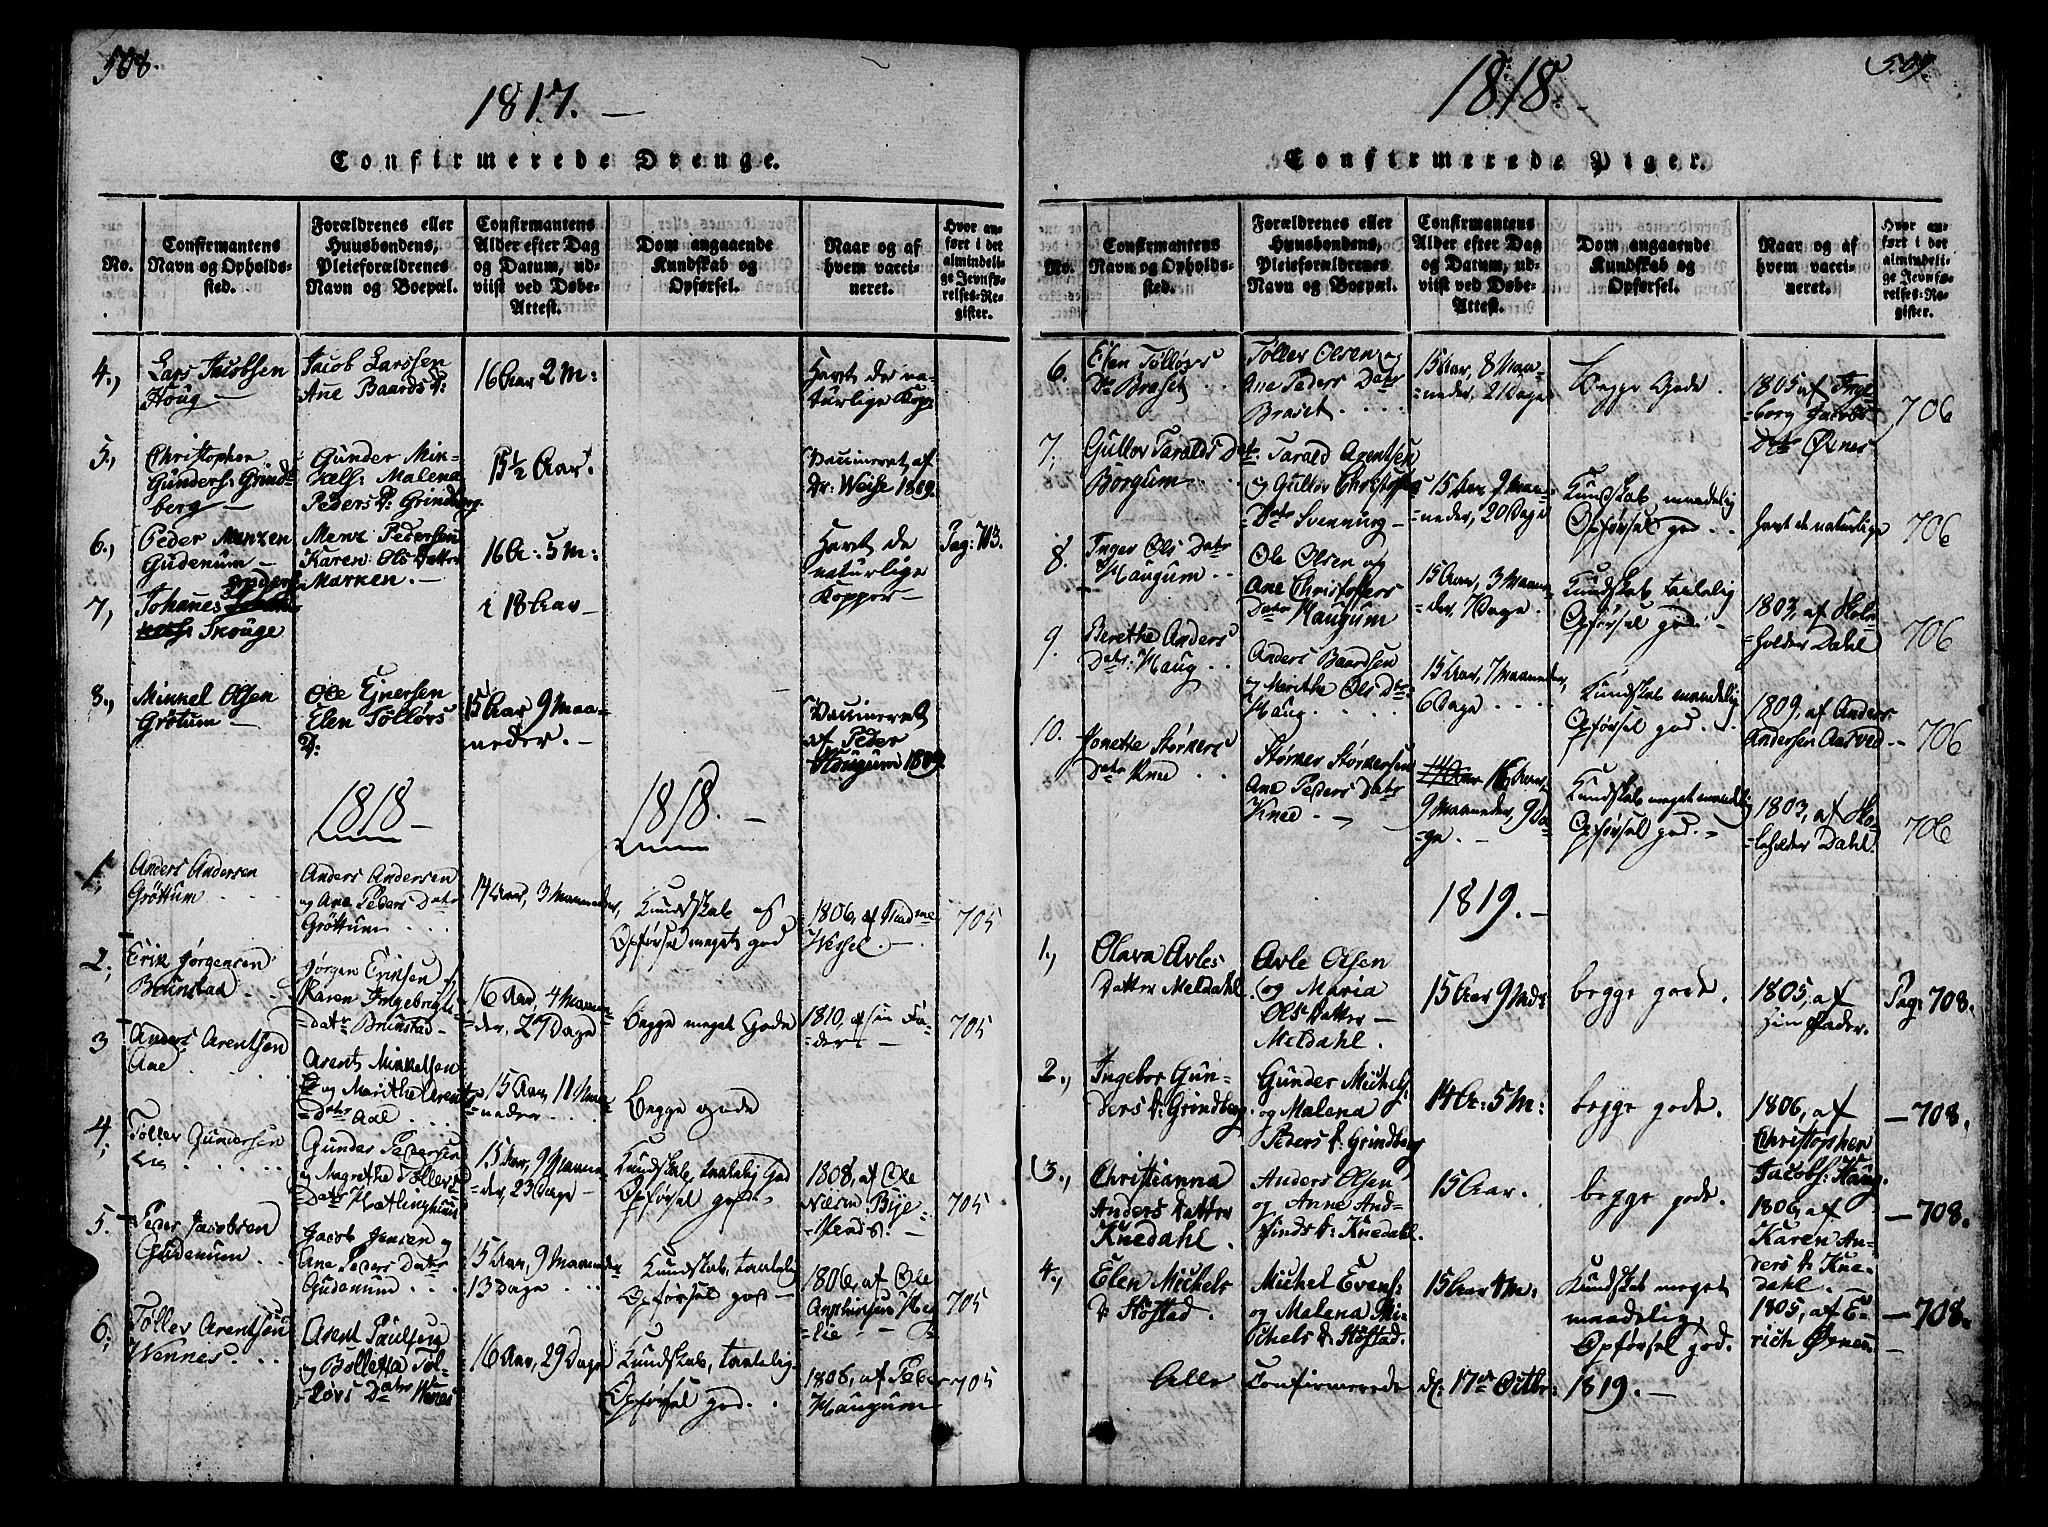 508.
1817. —
Confirmerede Drenge.
No.
Confirmantens
Navn og Opholds-
sted.
Forældrenes eller
Huusbondens,
Pleieforældrenes
Navn og Boepæl.
Confirmantens
Alder efter Dag
og Datum, ud-
viist ved Døbe-
Attest.
Dom angaaende
Kundskab og
Opførsel.
Naar og af
hvem vacci-
neret.
Hvor an-
ført i det
almindeli-
ge Jevnfø-
relses-Re-
gister.
4.,
Lars Jacobsen
Houg —
Jacob Larssen
Ane Baards D:
16 Aar 2 M:
Havt de na-
turlige Kopp
5.,
Christopher
Gunders: Grind-
berg —
Gunder Min-
kels: Malena
Peders D: Grindberg
15½ Aar.
Vaccineret af
Dr: Weise 1809.
6.,
Peder Menzen
Gudenum —
Menz Petersen
Karen Ols Datter
Marken. —
16 A: 5 M:
Havt de
naturlige
Kopper —
Pag: 703.
7.,
Johanes
Skouge
i 18 Aar —
8.,
Minkel Olsen
Grøtum —
Ole Ejnersen
Elen Tølløvs
D:
15 Aar 9 Maa-
neder. —
Vaccineret
af Peder
Hougum 1809.
1818 —
1818. —
1.,
Anders Andersen
Grøttum . . .
Anders Andersen
og Ane Peders Datr
Grøttum . . .
14 Aar, 3 Maaneder,
Kundskab og
Opførsel meget god
1806, af Madme
Wessel. —
705
2.,
Erik Jørgensen
Brunstad . .
Jørgen Eriksen
Karen Ingebregts
=datr Brunstad.
16 Aar, 4 Maane-
=der, 27 Dage
begge meget Gode
1810, af sin Fa-
=der. —
705
3
Anders Arentsen
Aae . . . .
Arent Minkelsen
og Marithe Arents
=Datr Aae . . . .
15 Aar, 11 Maa-
=neder . . .
Begge gode
4.,
Tøller Gundersen
Lie . . . . .
Gunder Petersen
og Magrethe Tøllers
Datr Hatlinghuus
15 Aar, 9 Maane-
=der, 23 Dage —
Kundskab, taalelig God
Opførsel god.
1808, af Ole
Nielsen Bye-
=Næss. —
705
5.
Peder Jacobsen
Gudenum . .
Jacob Jensen og
Ane Peders Datr
Gudenum . . .
15 Aar, 9 Maaneder
13 Dage . . .
Kundskab, taalelig
Opførsel god —
1806, af Ole
Arnthinsen He-
=lie — —
705
6.,
Tøller Arentsen
Wennes. . .
Arent Paulsen
og Bolletta Tøl-
=løvs Datr Wenes
16 Aar, 29 Dage
Kundskab, taalelig.
Opførsel god. .
1808, af Peder
Haugum
705
509.
1818. —
Confirmerede Piger.
No.
Confirmantens
Navn og Opholds-
sted.
Forældrenes eller
Huusbondens,
Pleieforældrenes
Navn og Boepæl.
Confirmantens
Alder efter Dag
og Datum, ud-
viist ved Døbe-
Attest.
Dom angaaende
Kundskab og
Opførsel.
Naar og af
hvem vacci-
neret.
Hvor an-
ført i det
almindeli-
ge Jevnfø-
relses-Re-
gister.
6.
Elen Tølløvs
Dr Braset . .
Tøller Olsen og
Ane Peders Datr
Braset . . . .
15 Aar, 8 Maa-
=neder, 21 Dage
Begge Gode .
1805 af Inge-
=borg Jacobs
Datr Øsnes
706
7.
Gullov Taralds Datr
Borgum . . .
Tarald Arentsen
og Gullov Christophers
=Datr Svenning —
15 Aar, 9 Maa-
neder, 20 Dage
Kundskab maadelig
Opførsel god . .
havt de naturlige
706
8.
Inger Ols Datr
Haugum . .
Ole Olsen og
Ane Christophers
Datr Haugum
15 Aar, 3 Maane-
=der, 7 Dage .
Kundskab taalelig
Opførsel god. —
1803, af Skole-
=holder Dahl
706
9.
Berethe Anders
Datr: Haug . .
Anders Baardsen
og Merithe Ols Datr
Haug . . . .
15 Aar, 7 Maaneder,
6 Dage . . . .
Kundskab maadelig
Opførsel god. . .
1809, af Anders
Andersen Aasved —
706
10.
Jonette Størkers
Datr Knee . .
Størker Størkersen
Ane Peders Datr
Knee . —
14 Aar 16 Aar,
9 Maaneder, 9 Da-
=ge. —
Kundskab meget maadelig
Opførsel god. —
1803, af Sko-
=leholder Dahl.
706
1819. —
1.,
Olava Avles
Datter Meldahl.
Avle Olsen
og Maria
Ols Datter —
Meldahl.
15 Aar 9 Mdr
begge gode.
1805, af
sin Fader.
Pag: 708.
2.,
Ingebor Gun-
ders D: Grindberg.
Gunder Michels:
og Malena
Peders D: Grindberg
14 A: 5 M:
begge gode.
1806, af
Christopher
Jacobs: Haug.
— 708.
3.,
Christianna
Anders Datter
Knedahl.
Anders Olsen
og Anne And-
finds D: Knedahl.
15 Aar.
begge gode.
1806, af
Karen An-
ders D: Kne-
dahl.
— 708.
4.,
Elen Michels
D: Høstad.
Michel Evens:
og Malena Mi-
chels D: Høstad.
15 Aar 4 M:
Kundskab meget
maadelig;
Opførsel god.
1805, af E-
rich Øsnes
— 708.
Alle Confirmerede d: 17de Octbr: 1819. —